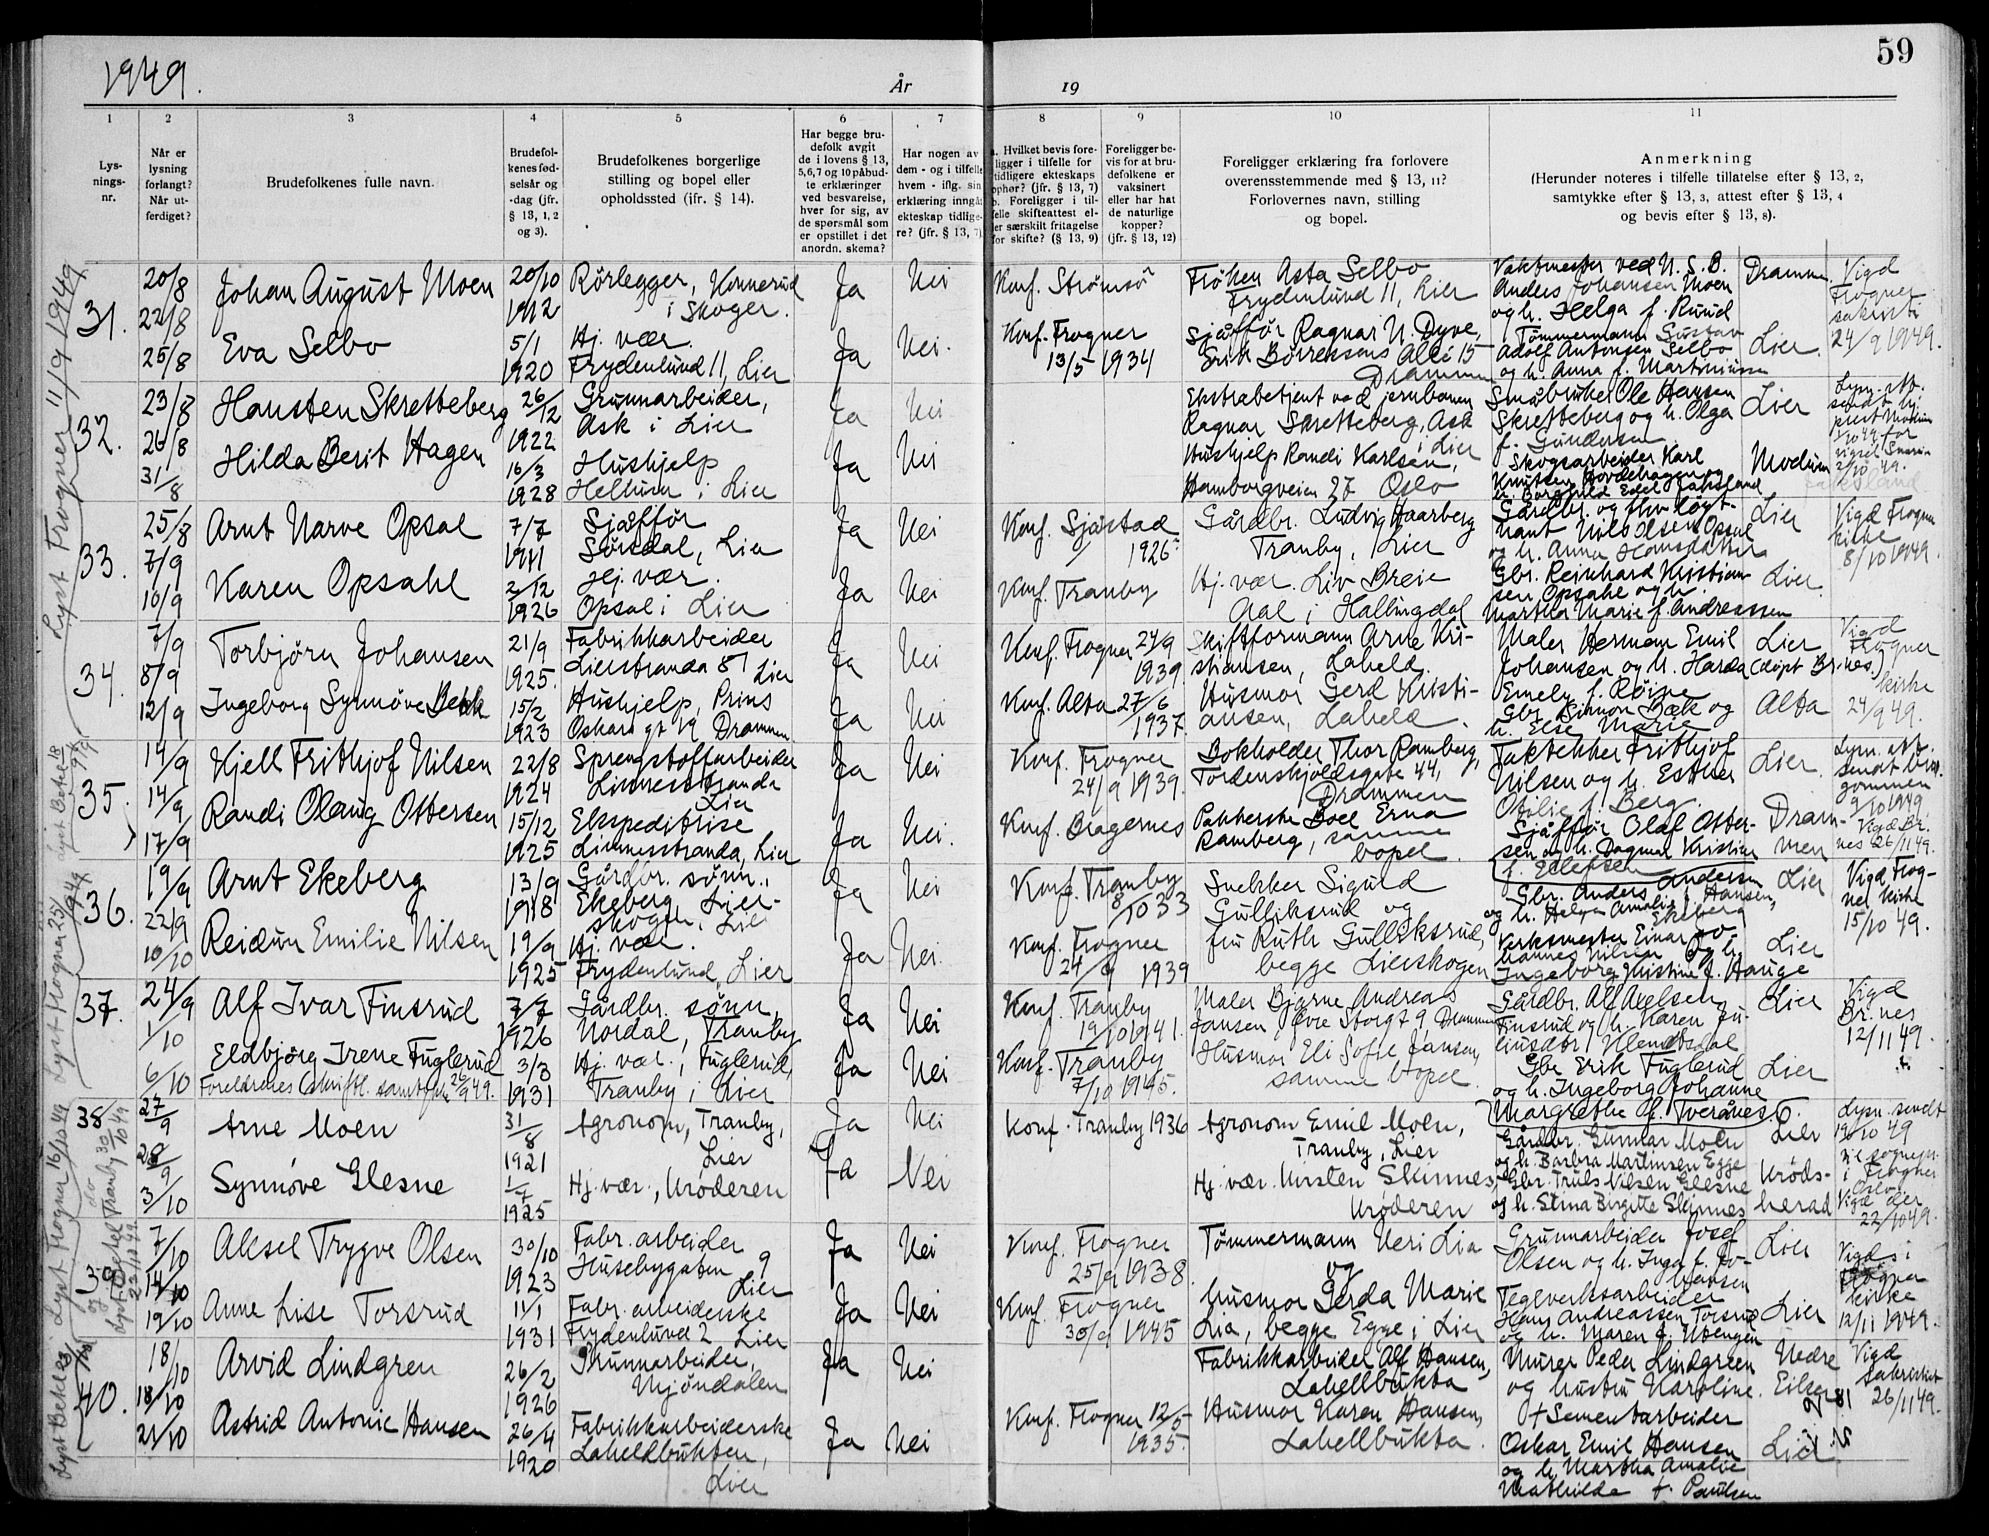 1949.
År
19
59
1
2
3
4
5
6
7
8
9
10
11
Lys-
nings-
nr.
Når er
lysning
forlangt?
Når ut-
ferdiget?
Brudefolkenes fulle navn.
Brudefol-
kenes fød-
selsår og
-dag (jfr.
§ 13, 1, 2
og 3).
Brudefolkenes borgerlige
stilling og bopel eller
opholdssted (ifr. § 14).
Har begge bru-
defolk avgit
de i lovens § 13,
5,6,7 og 10 påbud-
te erklæringer
ved besvarelse,
hver for sig, av
de spørsmål som
er opstillet i det
anordn. skema?
Har nogen av
dem - og i tilfelle
hvem - iflg. sin
erklæring inngåt
ekteskap tidlige-
re? (jfr. § 13, 7)
a. Hvilket bevis fore-
ligger i tilfelle for
tidligere ekteskaps
ophør? (jfr. § 13, 7)
b. Foreligger i til-
felle skifteattest el-
ler særskilt fritagelse
for skifte? (§ 13, 9)
Foreligger be-
vis for at bru-
defolkene er
vaksinert
eller har hat
de naturlige
kopper?
(jfr. § 13, 12)
Foreligger erklæring fra forlovere
overensstemmende med § 13, 11?
Forlovernes navn, stilling
og bopel.
Anmerkning
(Herunder noteres i tilfelle tillatelse efter § 13, 2,
samtykke efter § 13, 3, attest efter § 13, 4
og bevis efter § 13, 8).
31.
20/8
22/8
25/8
Johan August Moen
20/10
1912
Rørlegger, Konnerud
i Skoger.
Ja
Nei
Konf. Strømsø
Frøken Asta Selbo
Frydenlund 11, Lier
Vaktmester ved N. S. B.
Anders Johansen Moen
og h. Helga f. Ruud
Drammen.
Vigd
Frogner
sakristi
24/9 1949.
Eva Selbo
5/1
1920
Hj. vær.
Frydenlund 11, Lier
Ja
Nei.
Konf. Frogner
13/5 1934
Sjåffør Ragnar N. Dyve,
Erik Børresens Alle 15
Drammen
Tømmermann Gustav
Adolf Antonsen Selbo
og h. Anna f. Martiniussen
Lier.
32.
23/8
26/8
31/8
Hansten Skretteberg
26/12
1922
Grunnarbeider,
Ask i Lier
Ja
Nei
Ekstrabetjent ved jernbanen
Ragnar Skretteberg, Ask
i Lier
Småbruker Ole Hansen
Skretteberg og h. Olga
f. Gundersen
Lier
Hilda Berit Hagen
16/3
1928
Hushjelp
Hellum i Lier
Ja
Nei
Hushjelp Randi Karlsen,
Hamborgveien 27 Oslo
Skogsarbeider Karl
Knutsen Hovdehagen og
Modum
33.
25/8
7/9
10/9
Arnt Narve Opsal
7/7
1911
Sjåffør
Sørsdal, Lier
Ja
Nei
Konf. Sjåstad
1926
Gårdbr. Ludvig Haarberg
Tranby, Lier
Gårdbr. og
Nils Olsen Opsal
og h. Anna Hansdatter
Lier
Vigd Frogner
kirke
8/10 1949.
Karen Opsahl
2/12
1926
Hj. vær.
Opsal i Lier
Ja
Nei
Konf. Tranby
Hj. vær. Liv Breie
Aal i Hallingdal
Gbr. Reinhard Kristian-
sen Opsahl og h.
Martha Marie f. Andreassen
Lier.
34.
7/9
8/9
12/9
Torbjørn Johansen
21/9
1925.
Fabrikkarbeider
Lierstranda 81 Lier
Ja
Nei
Konf. Frogner 24/9
1939
Skiftformann Arne Kri-
stiansen, Lahell.
Maler Herman Emil
Johansen og h. Harda (døpt Br.nes)
Emely f. Røine
Lier
Vigd
Frogner
kirke
24/9 49.
Ingeborg Synnøve Bekk
15/2
1923
Hushjelp, Prins
Oskars gt 19 Drammen
Ja
Nei
Konf. Alta 27/6
1937.
Husmor Gerd Kristi-
ansen, Lahell.
Gbr. Simon Bæk og
h. Else Marie
Alta
35.
14/9
14/9
17/9
Kjell Frithjof Nilsen
22/8
1924
Sprengstoffarbeider
Linnesstranda
Lier
Ja
Nei
Konf. Frogner
24/9 1939.
Bokholder Thor Ramberg,
Tordenskjoldsgate 44,
Drammen
Taktekker Frithjof
Nilsen og h. Esther
Otilie f. Berg.
Lier.
Lysn. att.
sendt brud-
gommen
9/10 1949
Vigd Br.
nes 26/11 49.
Randi Olaug Ottersen
15/12
1925
Ekspeditrise
Linnesstranda, Lier
Ja
Nei.
Konf. Bragernes
Pakkerske Boel Erna
Ramberg, samme
bopel.
Sjåffør Olaf Otter-
sen og h. Dagmar Kristine
f. Ellefsen
Dram-
men
36.
19/9
22/9
10/10
Arnt Ekeberg
13/9
1918
Gårdbr. sønn.,
Ekeberg, Lier-
skogen, Lier
Ja
Nei
Konf. Tranby
8/10 33
Snekker Sigurd
Gulliksrud og
Gbr. Anders Andersen
og h. Helga Amalie f. Hansen,
Ekeberg
Lier
Vigd Frog-
ner kirke
15/10 49.
Reidun Emilie Nilsen
19/9
1925
Hj. vær.
Frydenlund, Lier
Ja
Nei.
Konf. Frogner
24/9 1939
fru Ruth Gulliksrud,
begge Lierskogen
Verksmester Einar Jo-
hannes Nilsen og h.
Ingeborg Kristine f. Hauge
Lier
37.
24/9
1/10
6/10
Alf Ivar Finsrud
7/7
1926
Gårdbr. sønn,
Nordal, Tranby
Ja
Nei
Konf. Tranby
19/10 1941.
Maler Bjarne Andreas
Jansen Øvre Storgt 9 Drammen
Gårdbr. Alf Axelsen
Finsrud og h. Karen
Lier
Vigd
Br.nes
12/11 49.
Eldbjørg Irene Fuglerud
Foreldrenes skriftl. samtykke 26/9 49.
3/3
1931
Hj. vær., Fuglerud,
Tranby i Lier
Ja
Nei
Konf. Tranby
7/10 1945.
Husmor Eli Sofie Jansen,
samme bopel.
Gbr Erik Fuglerud
og h. Ingeborg Johanne
Margrethe f. Tverånes.
Lier
38.
27/9
28/9
3/10
Arne Moen
31/8
1921
Agronom, Tranby,
Lier
Ja
Nei
Konf. Tranby 1936
Agronom Emil Moen,
Tranby, Lier
Gårdbr. Gunnar Moen
og h. Barbra Martinsen Egge
Lier
Lysn. sendt
19/10 49
til sognepr.
i Frogner
Oslo.
Vigd der
22/10 49.
Synnøve Glesne
1/7
1925
Hj. vær., Krøderen
Ja
Nei
Hj. vær. Kirsten Skinnes,
Krøderen
Gbr. Truls Nilsen Glesne
og h. Stina Birgitte Skinnes
Krøds-
herad
39
7/10
14/10
19/10
Aksel Trygve Olsen
30/10
1923
Fabr. arbeider
Husebygaten 9
Lier
Ja
Nei
Konf. Frogner
25/9 1938.
Tømmermann Neri Lia
og
Grunnarbeider Josef
Olsen og h. Inga f. Jo-
hansen
Lier
Vigd i
Frogner
kirke
12/11 1949.
Anne Lise Torsrud
11/1
1931
Fabr. arbeiderske
Frydenlund 2 Lier
Ja
Nei
Konf. Frogner
30/9 1945
husmor Gerda Marie
Lia, begge Egge i Lier
Teglverksarbeider
Hans Andreassen Torsrud
og h. Maren f. Utengen
Lier
40.
18/10
18/10
21/10
Arvid Lindgren
26/2
1926
Grunnarbeider,
Mjøndalen
Ja
Nei
Fabrikkarbeider Alf Hansen,
Lahellbukta
Murer Peder Lindgreen
og hustru Karoline.
Nedre
Eiker
Vigd
sakristiet
26/11 49.
Astrid Antonie Hansen
26/4
1920
Fabrikkarbeiderske
Lahellbukten,
Lier
Ja
Nei
Konf. Frogner 12/5
1935.
Husmor Karen Hansen,
Lahellbukta.
† Sementarbeider
Oskar Emil Hansen
og h. Martha Amalie
Mathilde f. Paulsen
Lier
Lyst Frogner 11/9 1949
Lyst Frogner 25/9 49
Lyst Frogner 16/10 49